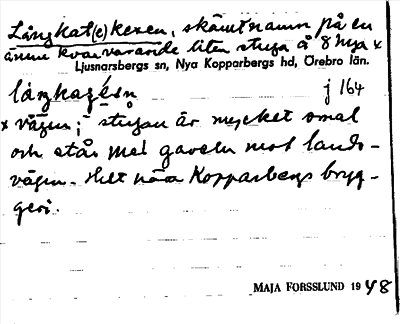 Långkat(e)kexen, skämtnamn på en
ännu kvarvarande liten stuga å 8 Nya x
Ljusnarsbergs sn, Nya Kopparbergs hd, Örebro län.
långkazésn j 164
x vägen; - stugan är mycket smal
och står med gaveln mot lands-
vägen. Helt nära Kopparbergs bryg-
geri.
MAJA FORSSLUND 1948